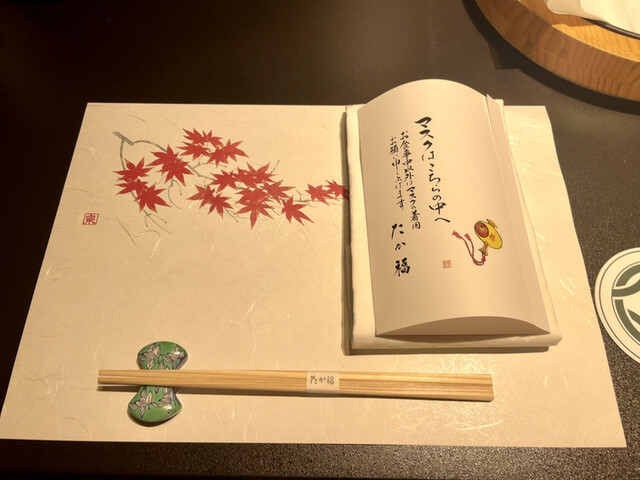 マスクはこちらの中へ
お食事中以外はマスクの着用
お願い申し上げます
たか福
たか福
東